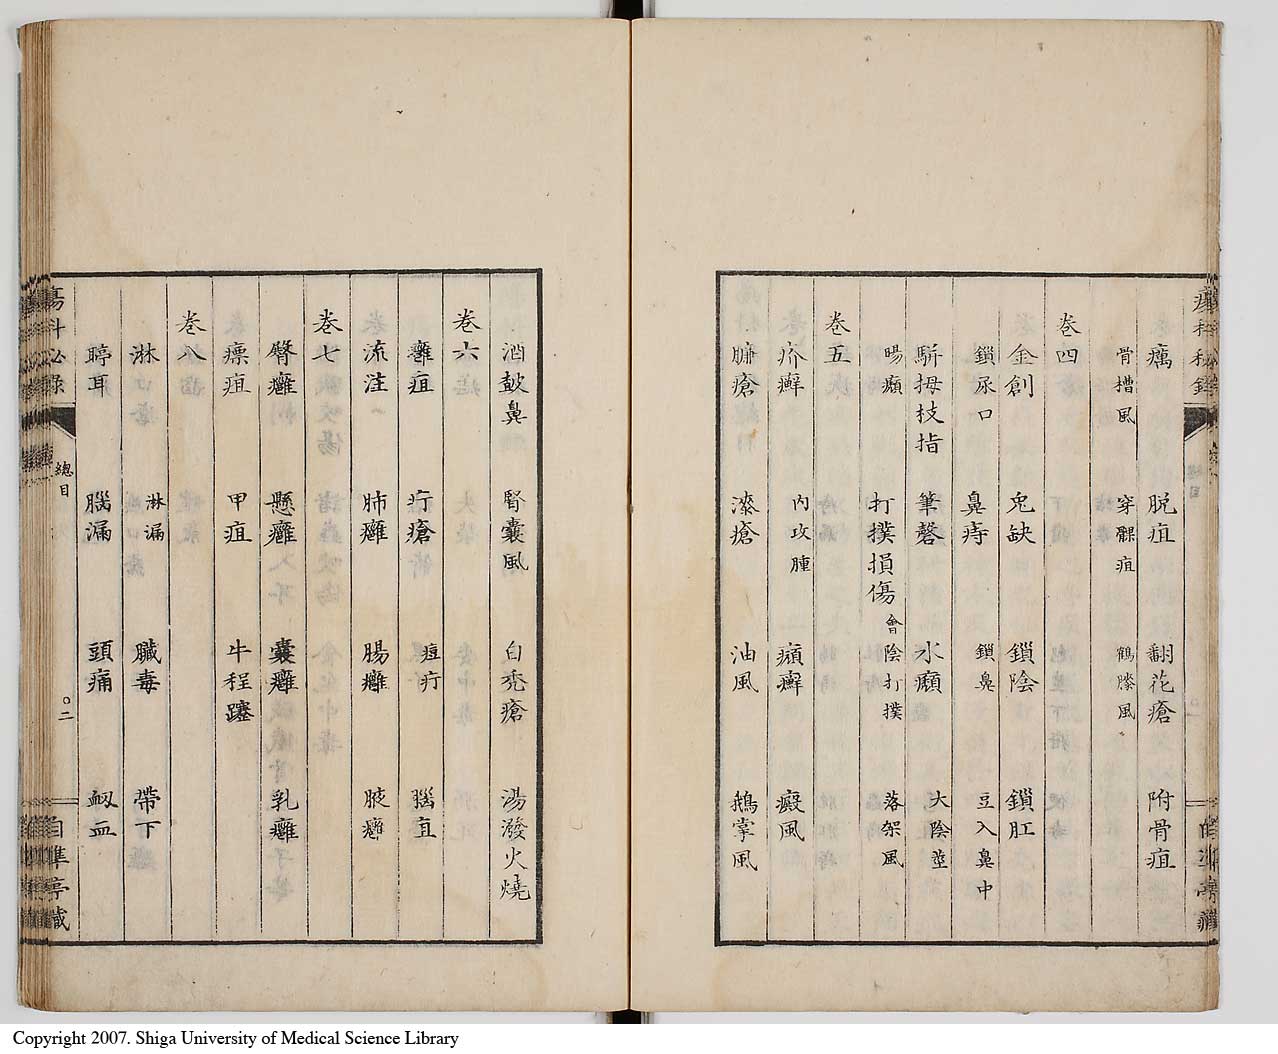 瘍科秘錄
癘 脫疽 翻花瘡 附骨疽
骨槽風 穿髁疽 鶴膝風
卷四
金創 兔缺 鎖陰 鎖肛
鎖尿口 鼻痔 鎖鼻 豆入鼻中
駢拇枝指 筆罄 水癩 大陰莖
腸癩 打撲損傷 會陰打撲 落架風
卷五
疥癬 內攻腫 頑癬 癜風
臁瘡 漆瘡 油風 鵝掌風
酒皶鼻 腎囊風 白禿瘡 湯潑火燒
卷六
癰疽 疔瘡 痘疔 腦疽
流注 肺癰 腸癰 腋癰
卷七
臀癰 懸癰 囊癰 乳癰
瘭疽 甲疽 牛程蹇
卷八
淋 淋漏 臟毒 帶下
聤耳 腦漏 頭痛 衂血
瘍科秘錄 總目 〇二 自準亭藏
Copyright 2007. Shiga University of Medical Science Library